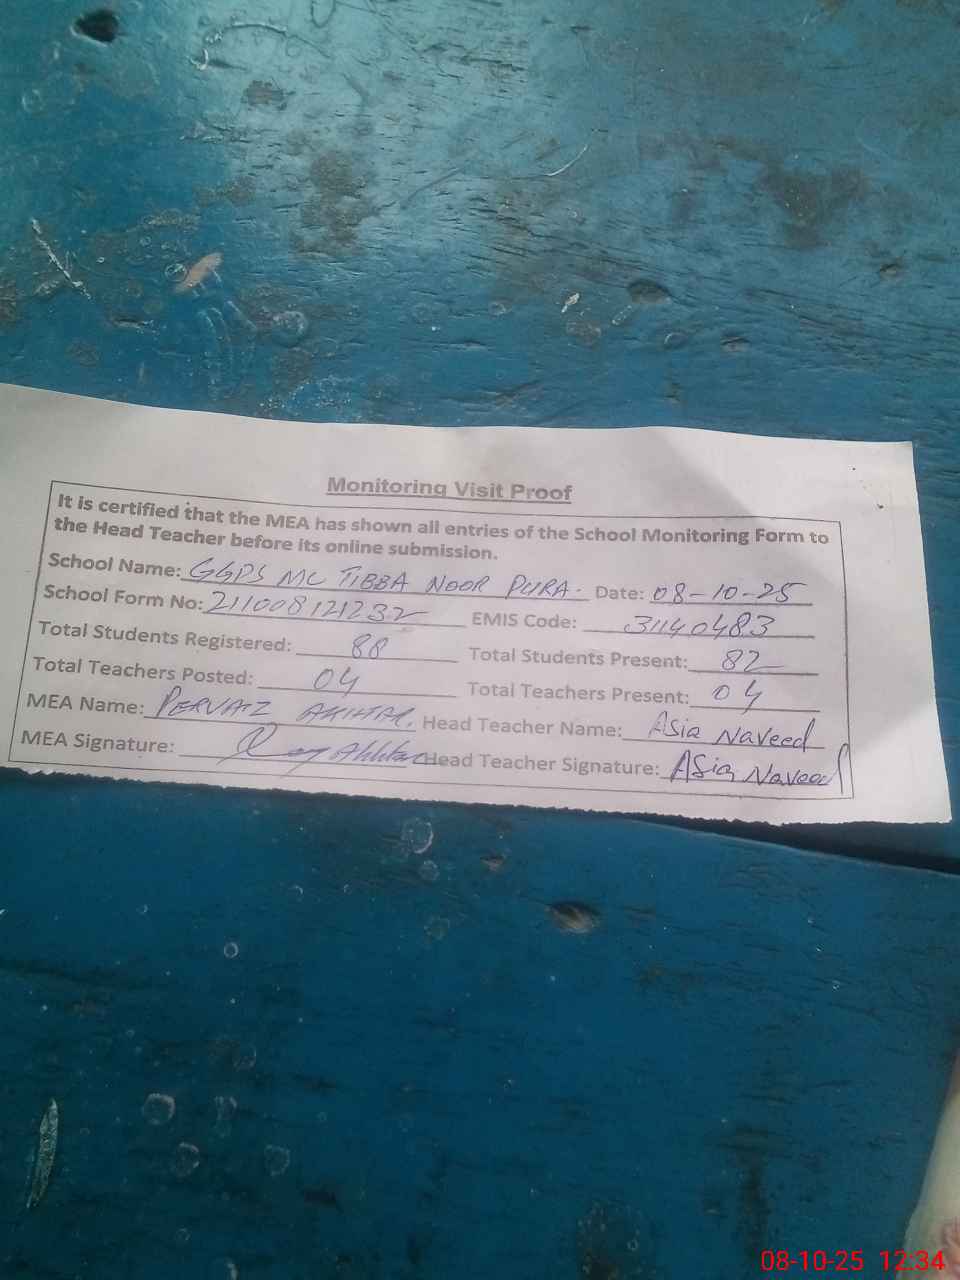 Monitoring Visit Proof
It is certified that the MEA has shown all entries of the School Monitoring Form to
the Head Teacher before its online submission.
School Name: GGPS MC TIBBA NOOR PURA. Date: 08-10-25
School Form No: 211008121232 EMIS Code: 31140483
Total Students Registered: 88 Total Students Present: 82
Total Teachers Posted: 04 Total Teachers Present: 04
MEA Name: PERVAIZ AKHTAR. Head Teacher Name: Asia Naveed
MEA Signature: Akhtar Head Teacher Signature: Asia Naveed
08-10-25 12:34